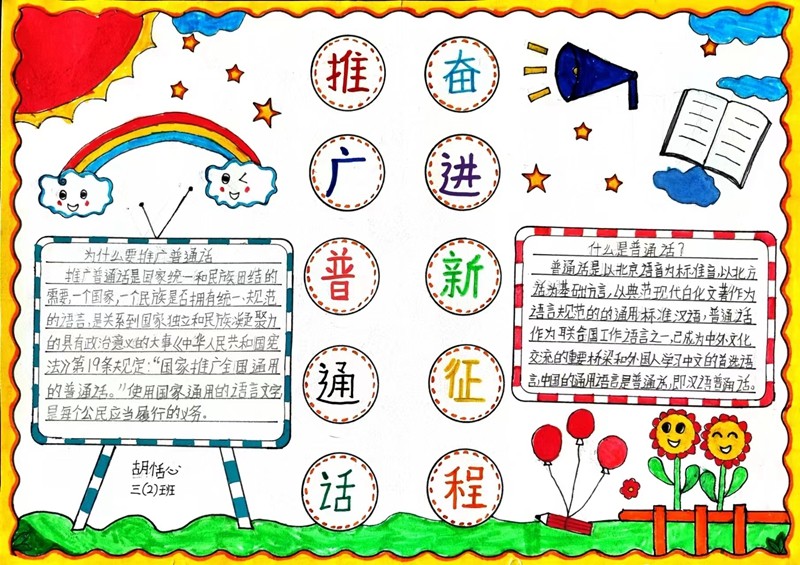 推广普通话
奋进新征程
为什么要推广普通话
推广普通话是国家统一和民族团结的
需要,一个国家,一个民族是否拥有统一、规范
的语言,是关系到国家独立和民族凝聚力
的具有政治意义的大事《中华人民共和国宪
法》第19条规定:“国家推广全国通用
的普通话。”使用国家通用的语言文字
是每个公民应当履行的义务。
胡恬心
三(2)班
什么是普通话?
普通话是以北京语音为标准音,以北方
话为基础方言,以典范现代白化文著作为
语言规范的的通用标准汉语,普通话
作为联合国工作语言之一,已成为中外文化
交流的重要桥梁和外国人学习中文的首选语
言,中国的通用语言是普通话,即汉语普通话。